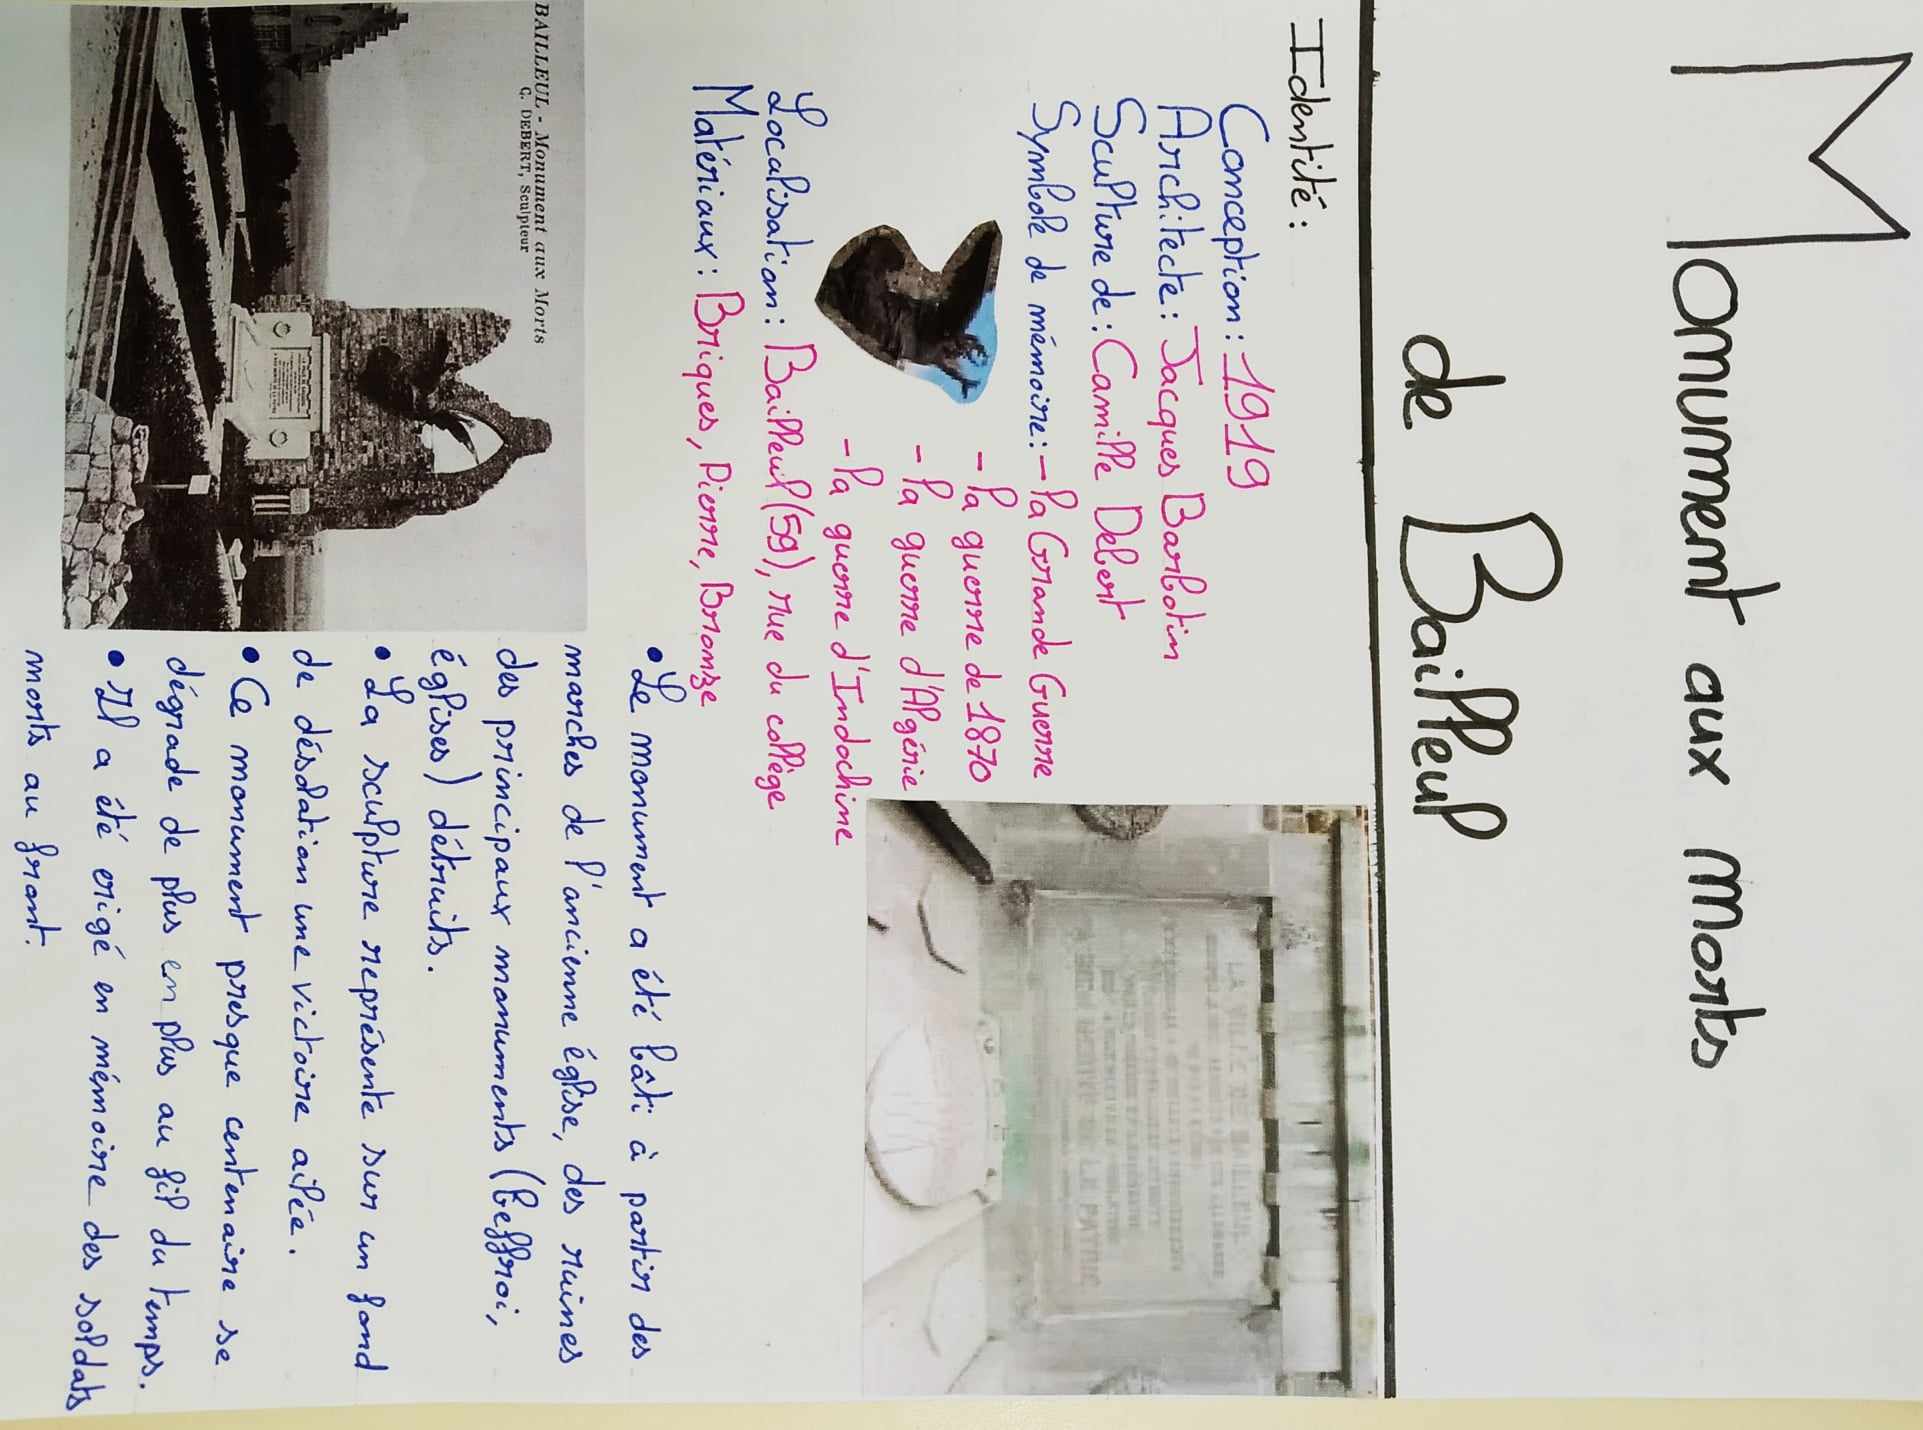 Monument aux morts
de Bailleul
Identité :
Conception : 1919
Architecte : Jacques Barbotin
Sculpture de : Camille Debert
Symbole de mémoire : - la Grande Guerre
- la guerre de 1870
- la guerre d'Algérie
- la guerre d'Indochine
Localisation : Bailleul (59), rue du collège
Matériaux : Briques, Pierre, Bronze
LA VILLE DE BAILLEUL
LA PATRIE
BAILLEUL - Monument aux Morts
C. DEBERT, Sculpteur
• Le monument a été bâti à partir des
marches de l'ancienne église, des ruines
des principaux monuments (beffroi,
églises) détruits.
• La sculpture représente sur un fond
de désolation une victoire ailée.
• Ce monument presque centenaire se
dégrade de plus en plus au fil du temps.
• Il a été erigé en mémoire des soldats
morts au front.